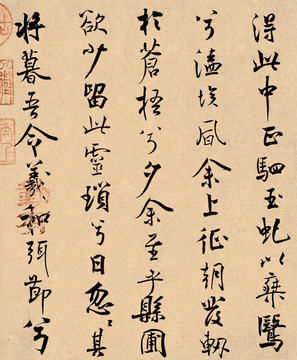 得此中正駟玉虬以乘鷖
兮溘埃風余上征朝發軔
於蒼梧兮夕余至乎縣圃
欲少留此靈瑣兮日忽〻其
將暮吾令羲和弭節兮